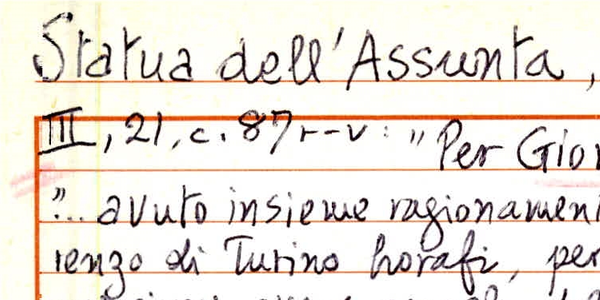 Statua dell'Assunta,
III, 21, c. 87 r-v: "Per Gior
"... avuto insieme ragionameni
renzo di Turino horafi, per